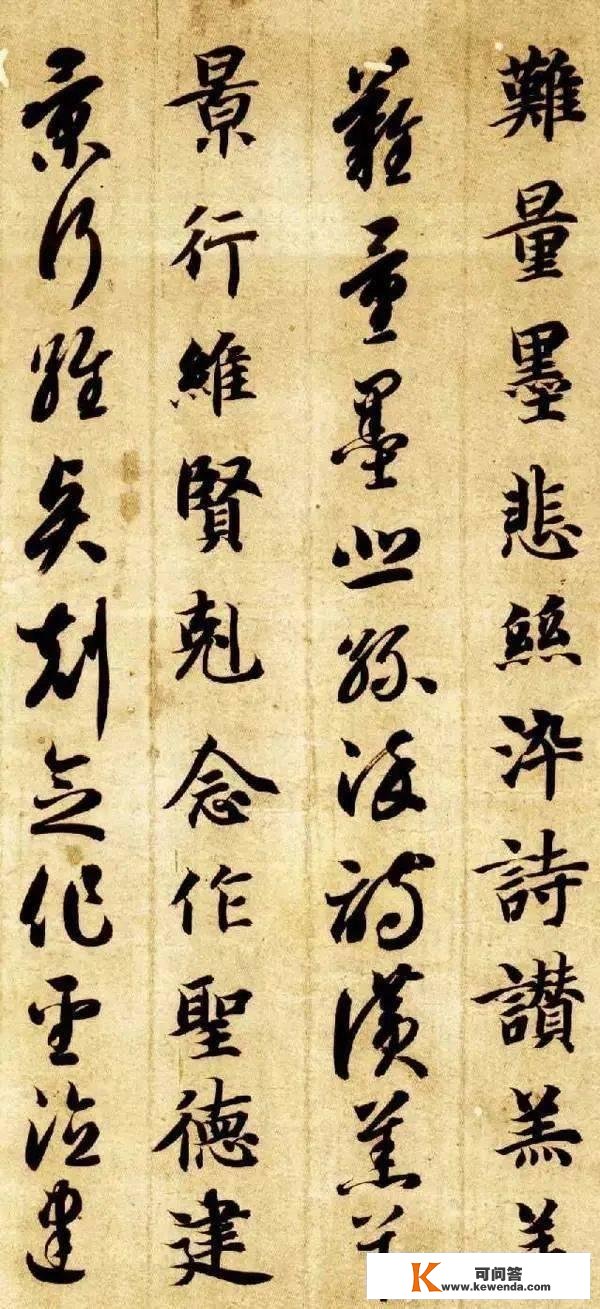 難量墨悲絲染詩讚羔羊
難量墨悲絲染詩讚羔羊
景行維賢剋念作聖德建
景行維賢剋念作聖德建
K 可问答
www.kewenda.com